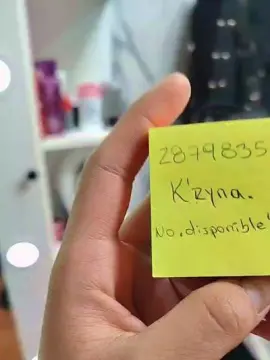 2879835
K'zyna.
No, disponible'